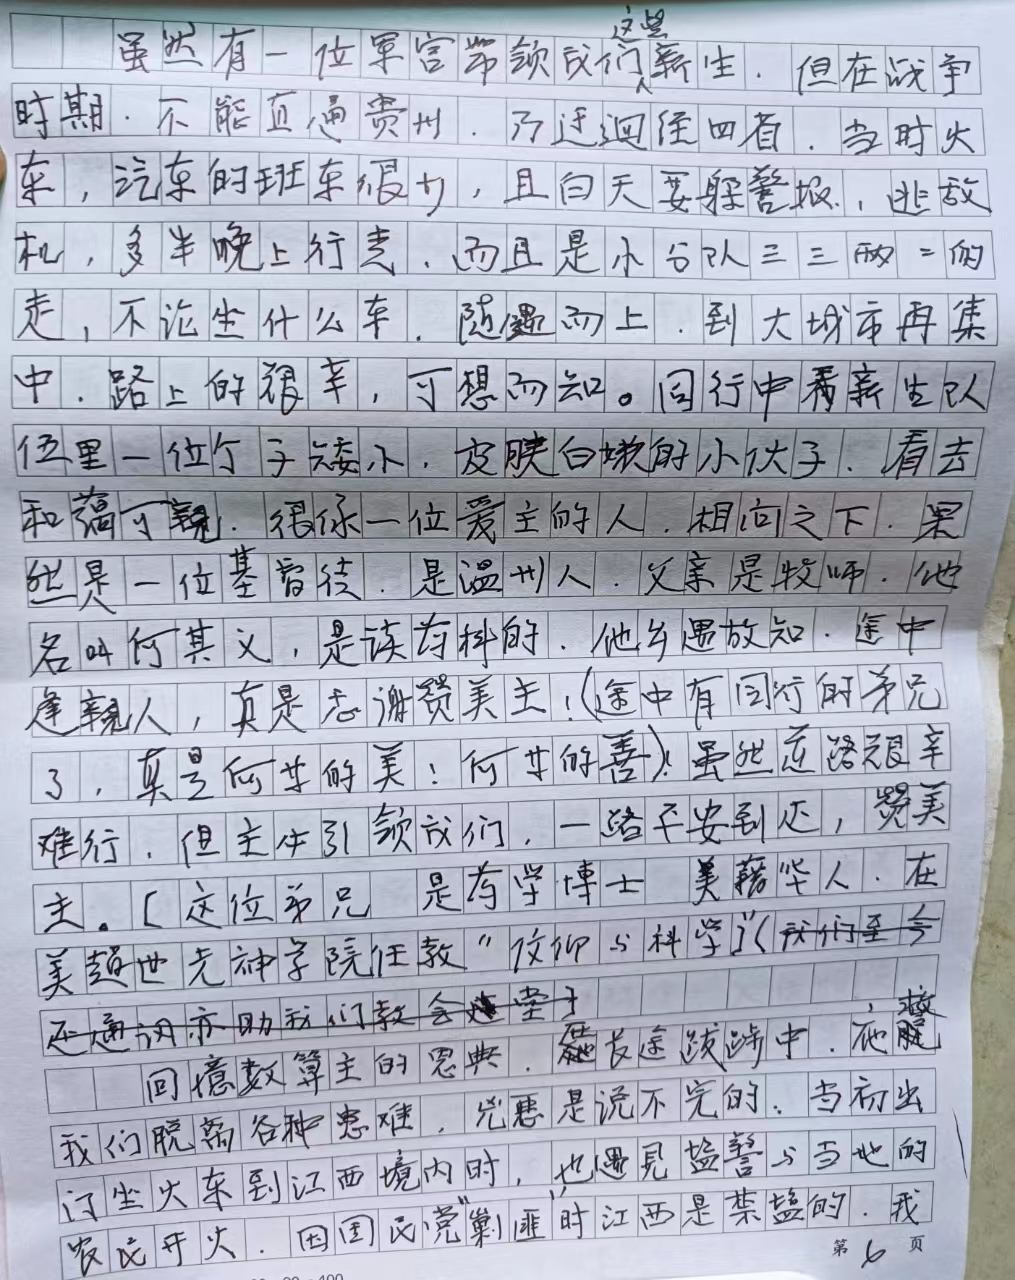 虽然有一位军官带领我们这些新生.但在战争
时期.不能直通贵州.乃迂迴径四省.当时火
车,汽车的班车很少,且白天要躲警报,逃敌
机,多半晚上行走.而且是小台队三三两二的
走,不论坐什么车.随遇而上.到大城市再集
中.路上的艰辛,可想而知。同行中看新生队
伍里一位个子矮小.皮肤白嫩的小伙子.看去
和蔼可親.很像一位爱主的人.相问之下.果
然是一位基督徒.是温州人.父亲是牧师.他
名叫何其义,是读药科的.他乡遇故知.途中
逢親人,真是感谢赞美主!(途中有同行的弟兄
了,真是何等的美!何等的善)!虽然这路艰辛
难行.但主在引领我们,一路平安到达,赞美
主。[这位弟兄 是药学博士 美藉华人.在
美趙世光神学院任教"信仰与科学"](我们至今
还通讯亦助我们教会建堂)
回憶数算主的恩典.在长途跋踄中.他救
我们脱离各种患难,兇恶是说不完的.当初出
门坐火车到江西境内时,也遇見盐警与当地的
农民开火.因国民党"剿匪"时江西是禁盐的.我
第6页